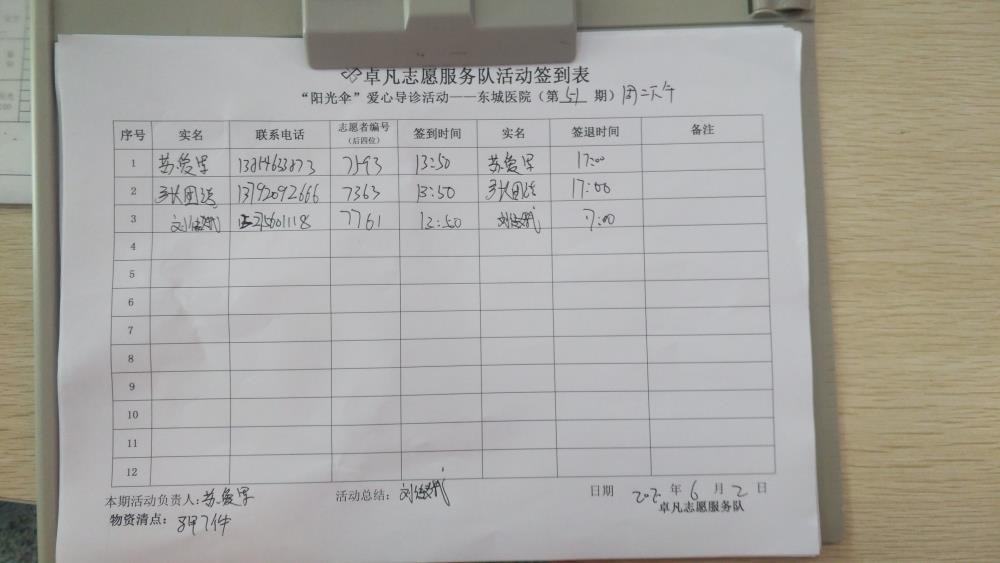 卓凡志愿服务队活动签到表
“阳光伞”爱心导诊活动——东城医院（第 51 期）周二下午
序号 实名 联系电话 志愿者编号（后四位） 签到时间 实名 签退时间 备注
1 苏爱军 7593 13:50 苏爱军 17:00
2 13792092666 7363 13:50 17:00
3 7761 13:50 17:00
4
5
6
7
8
9
10
11
12
本期活动负责人：苏爱军 活动总结： 日期 2020 年 6 月 2 日
物资清点： 卓凡志愿服务队